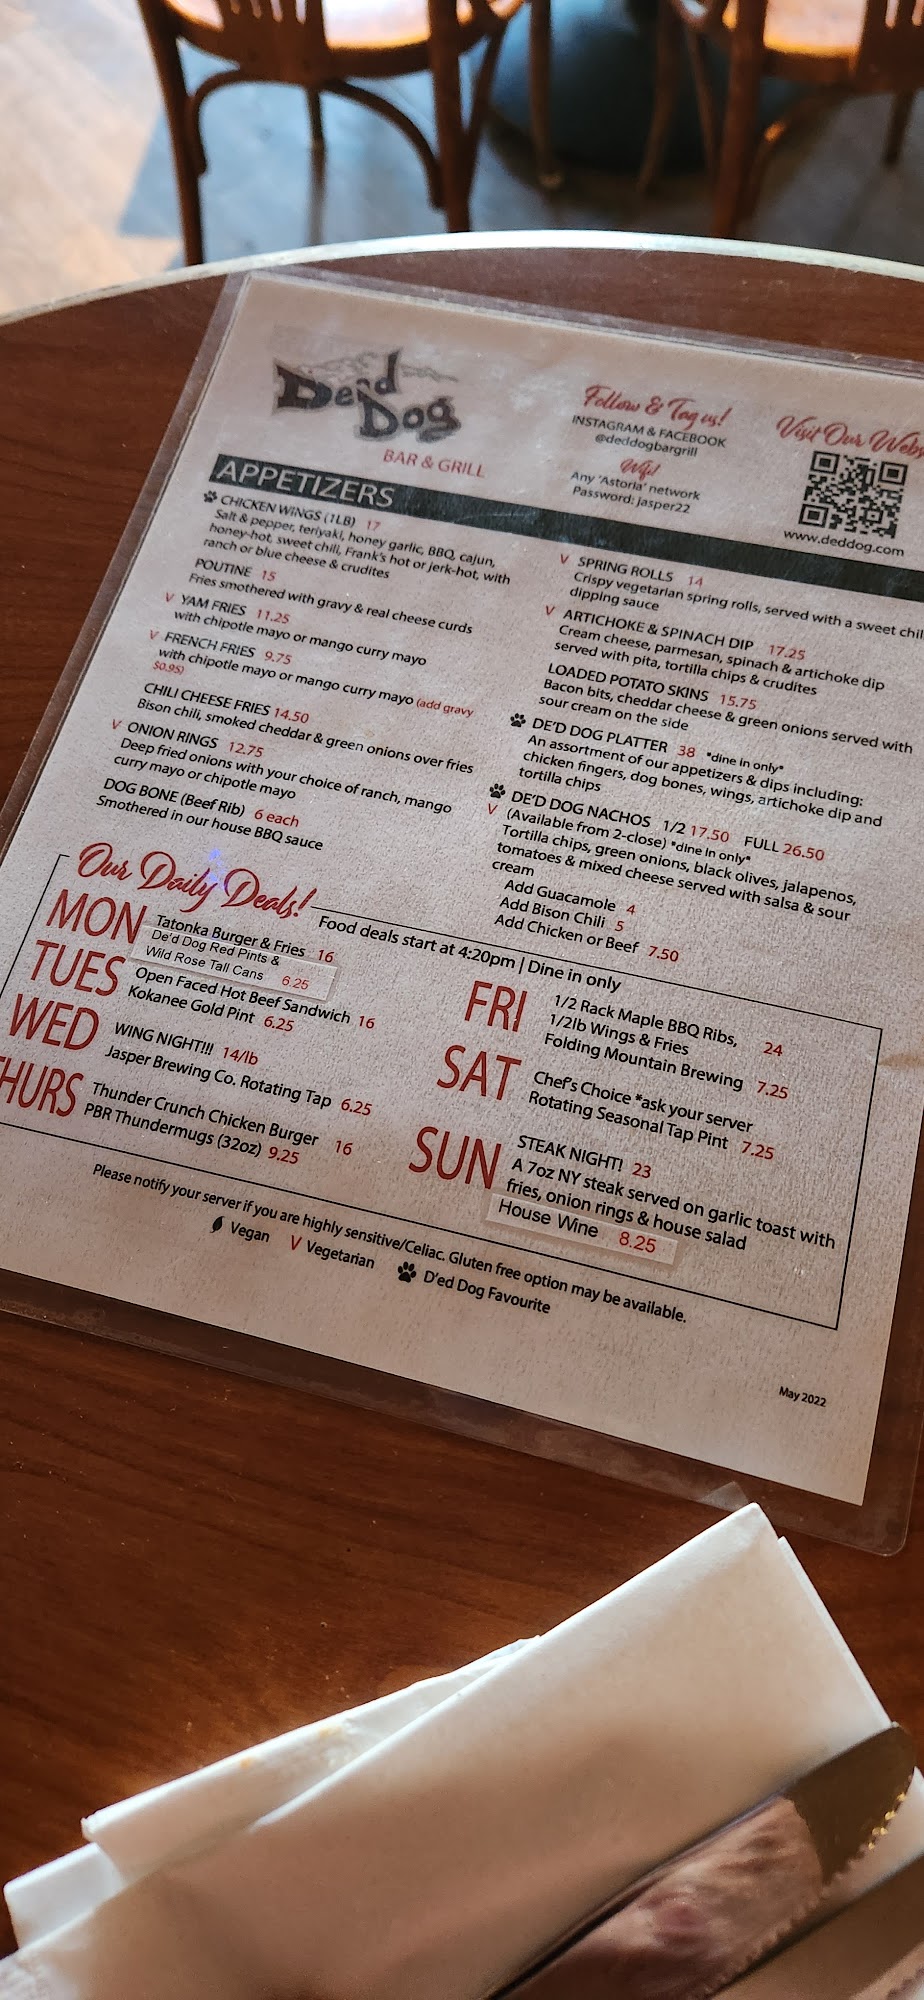 De'd Dog
BAR & GRILL
Follow & Tag us!
INSTAGRAM & FACEBOOK
@deddogbargrill
Wifi!
Any 'Astoria' network
Password: jasper22
Visit Our
www.deddog.com
APPETIZERS
CHICKEN WINGS (1LB) 17
Salt & pepper, teriyaki, honey garlic, BBQ, cajun,
honey-hot, sweet chili, Frank's hot or jerk-hot, with
ranch or blue cheese & crudites
POUTINE 15
Fries smothered with gravy & real cheese curds
V YAM FRIES 11.25
with chipotle mayo or mango curry mayo
V FRENCH FRIES 9.75
with chipotle mayo or mango curry mayo (add gravy
$0.95)
CHILI CHEESE FRIES 14.50
Bison chili, smoked cheddar & green onions over fries
V ONION RINGS 12.75
Deep fried onions with your choice of ranch, mango
curry mayo or chipotle mayo
DOG BONE (Beef Rib) 6 each
Smothered in our house BBQ sauce
V SPRING ROLLS 14
Crispy vegetarian spring rolls, served with a sweet
dipping sauce
V ARTICHOKE & SPINACH DIP 17.25
Cream cheese, parmesan, spinach & artichoke dip
served with pita, tortilla chips & crudites
LOADED POTATO SKINS 15.75
Bacon bits, cheddar cheese & green onions served with
sour cream on the side
DE'D DOG PLATTER 38 *dine in only*
An assortment of our appetizers & dips including:
chicken fingers, dog bones, wings, artichoke dip and
tortilla chips
DE'D DOG NACHOS 1/2 17.50 FULL 26.50
V (Available from 2-close) *dine in only*
Tortilla chips, green onions, black olives, jalapenos,
tomatoes & mixed cheese served with salsa & sour
cream
Add Guacamole 4
Add Bison Chili 5
Add Chicken or Beef 7.50
Our Daily Deals!
Food deals start at 4:20pm | Dine in only
MON
Tatonka Burger & Fries 16
De'd Dog Red Pints &
Wild Rose Tall Cans 6.25
TUES
Open Faced Hot Beef Sandwich 16
Kokanee Gold Pint 6.25
WED
WING NIGHT!!! 14/lb
Jasper Brewing Co. Rotating Tap 6.25
THURS
Thunder Crunch Chicken Burger 16
PBR Thundermugs (32oz) 9.25
FRI
1/2 Rack Maple BBQ Ribs,
1/2lb Wings & Fries 24
Folding Mountain Brewing 7.25
SAT
Chef's Choice *ask your server
Rotating Seasonal Tap Pint 7.25
SUN
STEAK NIGHT! 23
A 7oz NY steak served on garlic toast with
fries, onion rings & house salad
House Wine 8.25
Please notify your server if you are highly sensitive/Celiac. Gluten free option may be available.
Vegan V Vegetarian D'ed Dog Favourite
May 2022